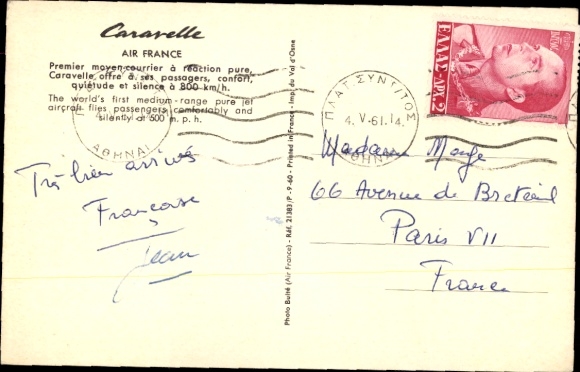 Caravelle
AIR FRANCE
Premier moyen-courrier à réaction pure,
Caravelle offre à ses passagers, confort,
quiétude et silence à 800 km/h.
The world's first medium-range pure jet
aircraft flies passengers comfortably and
silently at 500 m. p. h.
Très bien arrivés
Françoise
Jean
Photo Baité (Air France) - Réf. 21383/P - 9-60 - Printed in France - Imp. du Val d'Osne
ΑΘΗΝΑΙ
ΠΛΑΤ. ΣΥΝΤ/ΤΟΣ
4. V-61.14.
ΑΘΗΝΑΙ
ΕΛΛΑΣ-ΔΡΧ.2
Madame
66 Avenue de Breteuil
Paris VII
France